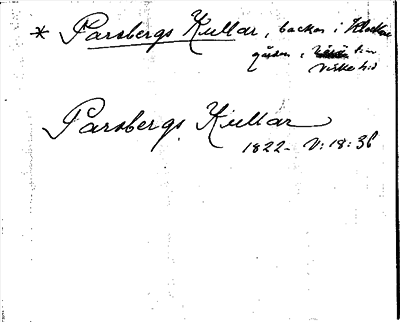 * Parsbergs Kullar, backar i Klockare
gården,
Parsbergs Kullar
1822- V:18:36